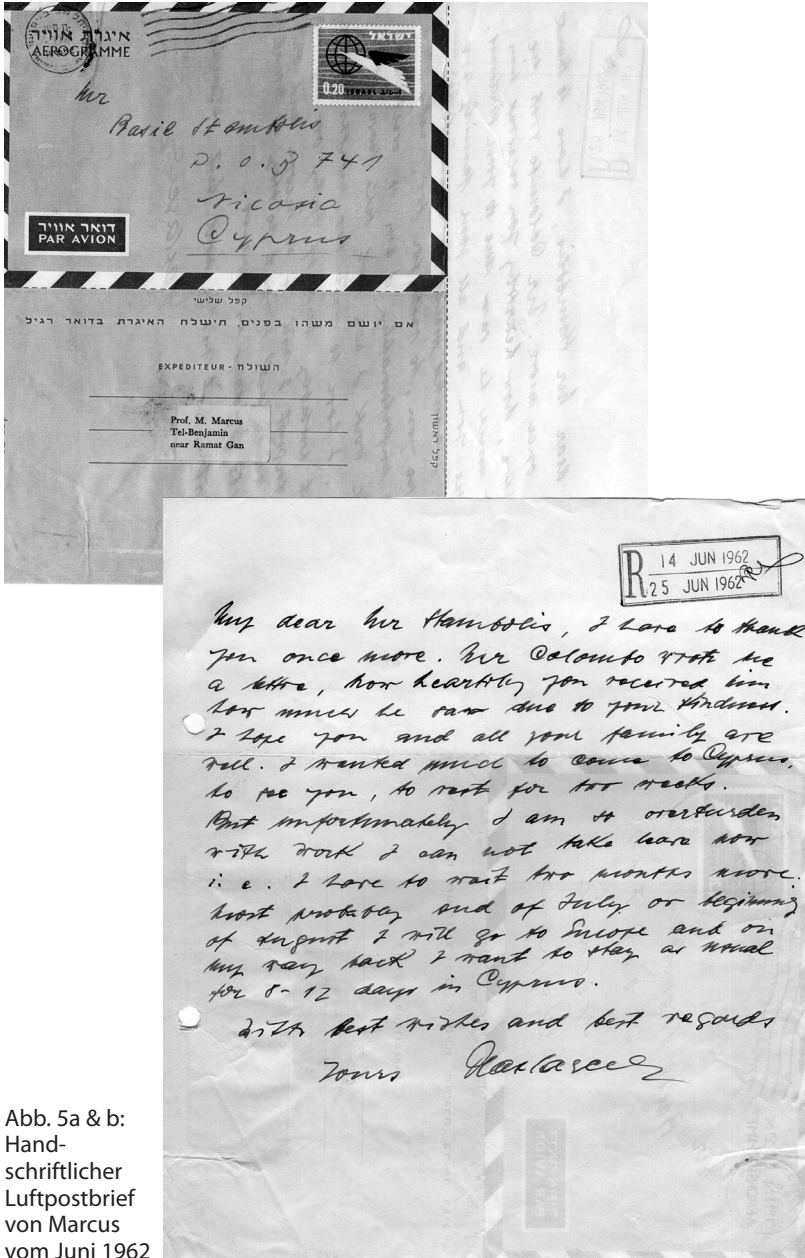 איגרת אוויר
AEROGRAMME
ישראל
0.20 ISRAEL
Mr
Basil Stambolis
P.O.B 741
Nicosia
Cyprus
דואר אוויר
PAR AVION
קפל שלישי
אם יושם משהו בפנים, תישלח האיגרת בדואר רגיל
EXPEDITEUR - השולח
Prof. M. Marcus
Tel-Benjamin
near Ramat Gan
קפל ראשון
R 14 JUN 1962
25 JUN 1962
My dear Mr Stambolis, I have to thank
you once more. Mr Colombo wrote me
a lettre, how heartily you received him
how much he saw due to your kindness.
I hope you and all your family are
well. I wanted much to come to Cyprus,
to see you, to rest for two weeks.
But unfortunately I am so overburden
with work I can not take leave now
i.e. I have to wait two months more.
Most probably end of July or beginning
of August I will go to Europe and on
my way back I want to stay as usual
for 8-12 days in Cyprus.
With best wishes and best regards
Yours
Abb. 5a & b:
Hand-
schriftlicher
Luftpostbrief
von Marcus
vom Juni 1962